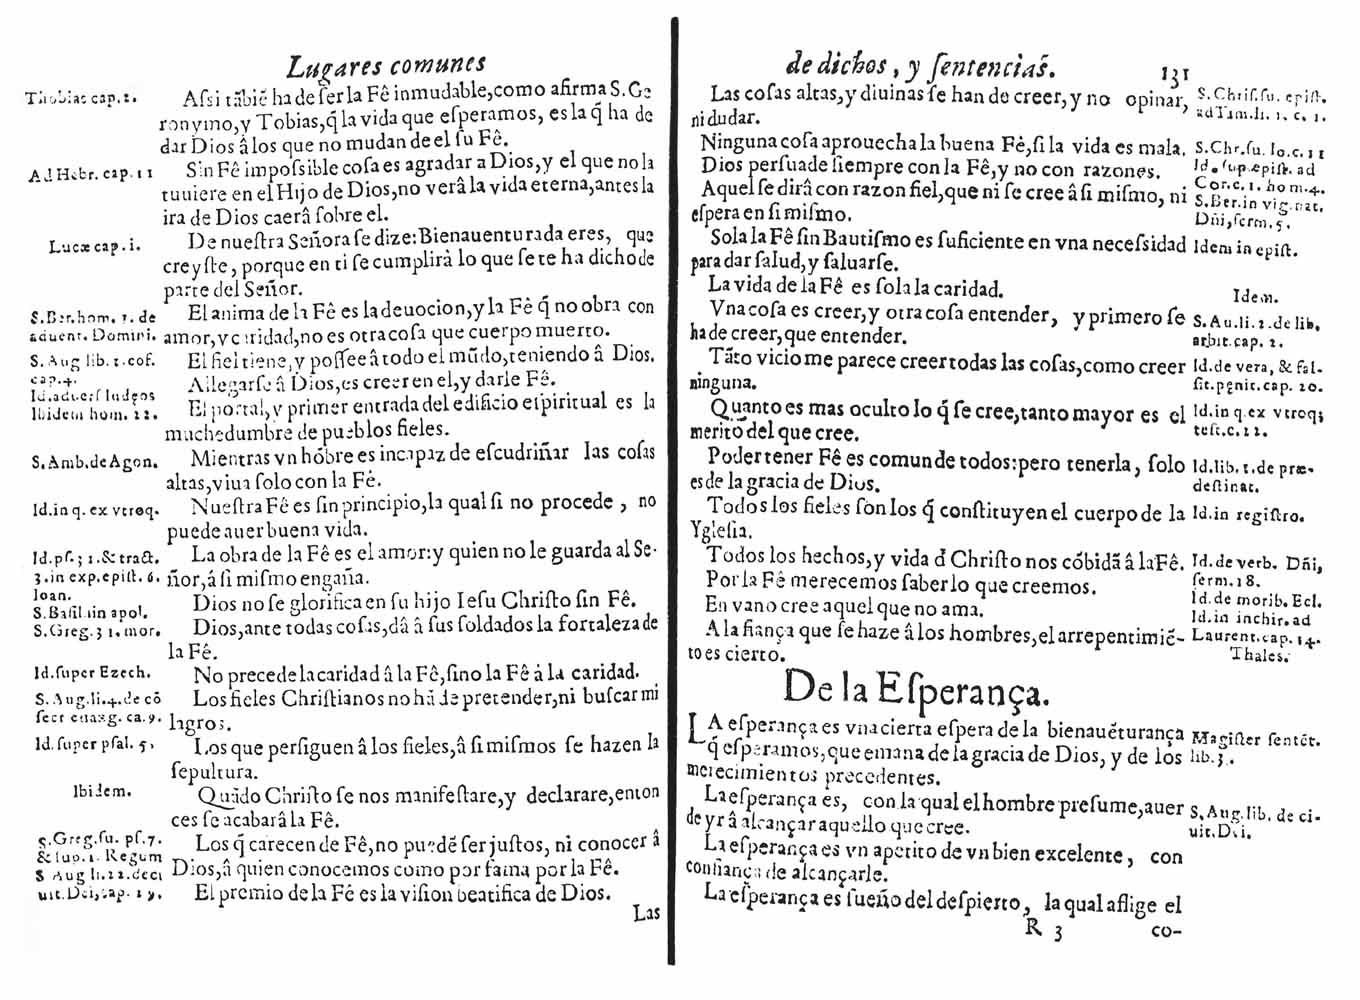 Lugares comunes
Thobiae cap. 2.
Aſsi tãbiẽ ha de ſer la Fê inmudable, como afirma S. Ge
ronymo, y Tobias, q̃ la vida que eſperamos, es la q̃ ha de
dar Dios â los que no mudan de el ſu Fê.
Ad Hebr. cap. 11
Sin Fê impoſsible coſa es agradar a Dios, y el que no la
tuuiere en el Hijo de Dios, no verâ la vida eterna, antes la
ira de Dios caerâ ſobre el.
Lucæ cap. i.
De nueſtra Señora ſe dize: Bienauenturada eres, que
creyſte, porque en ti ſe cumplirà lo que ſe te ha dicho de
parte del Señor.
S. Ber. hom. 2. de
aduent. Domini.
El anima de la Fê es la deuocion, y la Fè q̃ no obra con
amor, y caridad, no es otra coſa que cuerpo muerto.
S. Aug lib. 1. cof.
cap. 4.
El fiel tiene, y poſſee â todo el mũdo, teniendo â Dios.
Id. aduerſ Iudęos
Allegarſe â Dios, es creer en el, y darle Fê.
Ibidem hom. 22.
El portal, y primer entrada del edificio eſpiritual es la
muchedumbre de pueblos fieles.
S. Amb. de Agon.
Mientras vn hõbre es incapaz de eſcudriñar las coſas
altas, viua ſolo con la Fé.
Id. in q. ex vtroq.
Nueſtra Fê es ſin principio, la qual ſi no procede, no
puede auer buena vida.
Id. pſ. 31. & tract.
3. in exp. epiſt. 6.
Ioan.
La obra de la Fê es el amor: y quien no le guarda al Se-
ñor, â ſi miſmo engaña.
S. Baſil. in apol.
Dios no ſe glorifica en ſu hijo Ieſu Chriſto ſin Fê.
S. Greg. 31. mor.
Dios, ante todas coſas, dâ â ſus ſoldados la fortaleza de
la Fê.
Id. ſuper Ezech.
No precede la caridad â la Fê, ſino la Fê à la caridad.
S. Aug. li. 4. de cõ
ſecr euãg. ca. 9.
Los fieles Chriſtianos no hã de pretender, ni buſcar mi
lagros.
Id. ſuper pſal. 5.
Los que perſiguen â los fieles, â ſi miſmos ſe hazen la
ſepultura.
Ibidem.
Quãdo Chriſto ſe nos manifeſtare, y declarare, enton
ces ſe acabarâ la Fê.
S. Greg. ſu. pſ. 7.
& ſup. 1. Regum
Los q̃ carecen de Fê, no puedẽ ſer juſtos, ni conocer â
Dios, â quien conocemos como por fama por la Fê.
S Aug li. 22. de ci
uit. Dei, cap. 29.
El premio de la Fê es la viſion beatifica de Dios.
Las
de dichos, y ſentencias. 131
Las coſas altas, y diuinas ſe han de creer, y no opinar,
ni dudar.
S. Chriſ. ſu. epiſt.
ad Tim. li. 1. c. 1.
Ninguna coſa aprouecha la buena Fê, ſi la vida es mala.
S. Chr. ſu. Io. c. 11
Dios perſuade ſiempre con la Fê, y no con razones.
Id. ſup. epiſt. ad
Cor. c. 1. hom. 4.
Aquel ſe dirâ con razon fiel, que ni ſe cree â ſi miſmo, ni
eſpera en ſi miſmo.
S. Ber. in vig. nat.
Dñi, ſerm. 5.
Sola la Fê ſin Bautiſmo es ſuficiente en vna neceſsidad
para dar ſalud, y ſaluarſe.
Idem in epiſt.
La vida de la Fê es ſola la caridad.
Idem.
Vna coſa es creer, y otra coſa entender, y primero ſe
ha de creer, que entender.
S. Au. li. 2. de lib.
arbit. cap. 2.
Tãto vicio me parece creer todas las coſas, como creer
ninguna.
Id. de vera, & fal-
ſit. pęnit. cap. 20.
Quanto es mas oculto lo q̃ ſe cree, tanto mayor es el
merito del que cree.
Id. in q. ex vtroq;
teſt. c. 12.
Poder tener Fê es comun de todos: pero tenerla, ſolo
es de la gracia de Dios.
Id. lib. 1. de præ-
deſtinat.
Todos los fieles ſon los q̃ conſtituyen el cuerpo de la
Ygleſia.
Id. in regiſtro.
Todos los hechos, y vida d̃ Chriſto nos cõbidã â la Fê.
Id. de verb. Dñi,
ſerm. 18.
Por la Fê merecemos ſaber lo que creemos.
Id. de morib. Ecl.
En vano cree aquel que no ama.
Id. in inchir. ad
Laurent. cap. 14.
A la fiança que ſe haze â los hombres, el arrepentimiẽ-
to es cierto.
Thales.
De la Eſperança.
LA eſperança es vna cierta eſpera de la bienauẽturança
q̃ eſperamos, que emana de la gracia de Dios, y de los
merecimientos precedentes.
Magiſter ſentẽt.
lib. 3.
La eſperança es, con la qual el hombre preſume, auer
de yr â alcançar aquello que cree.
S. Aug. lib. de ci-
uit. Dei.
La eſperança es vn apetito de vn bien excelente, con
confiança de alcançarle.
La eſperança es ſueño del deſpierto, la qual aflige el
R 3 co-